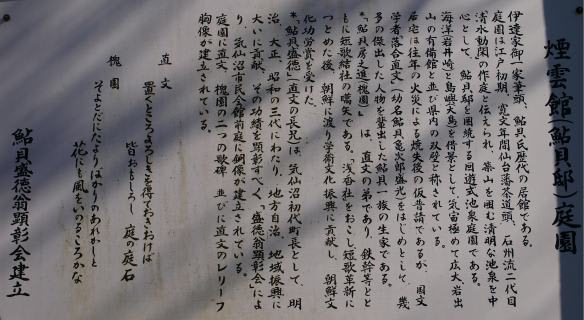 煙雲館(鮎貝邸)庭園
伊達家御一家筆頭、鮎貝氏歴代の居館である。
庭園は江戸初期、寛文年間仙台藩茶道頭、石州流二代目
清水動閑の作庭と伝えられ、築山を囲む清明な池泉を中
心として、鮎貝邸を囲繞する回遊式池泉庭園である。
海洋岩井崎と島嶼大島を借景として、気宙極めて広大岩出
山の有備館と並び県内の双壁と称されている。
居宅は往年の火災による焼失後の仮普請であるが、国文
学者落合直文(幼名鮎貝亀次郎盛光)をはじめとして、幾
多の傑出した人物を輩出した鮎貝一族の生家である。
*「鮎貝房之進(槐園)」は、直文の弟であり、鉄幹等とと
もに短歌結社の嚆矢である。「浅香社」をおこし短歌革新に
つとめた後、朝鮮に渡り学術文化振興に貢献し、朝鮮文
化功労賞を受けた。
*「鮎貝盛徳」(直文の長兄)は、気仙沼初代町長として、明
治、大正、昭和の三代にわたり、地方自治、地域振興に
大いに貢献、その功績を顕彰すべく、盛徳翁顕彰会」によ
り、気仙沼市民会館前庭に銅像が建立されている。
庭園に直文、槐園の二つの歌碑、並びに直文のレリーフ
胸像が建立されている。
直文
置くところよろしきを得ておきおけば
皆おもしろし 庭の庭石
槐園
そよとだにたよりばかりのあれかしと
花にも風をいのるころかな
鮎貝盛徳翁顕彰会建立